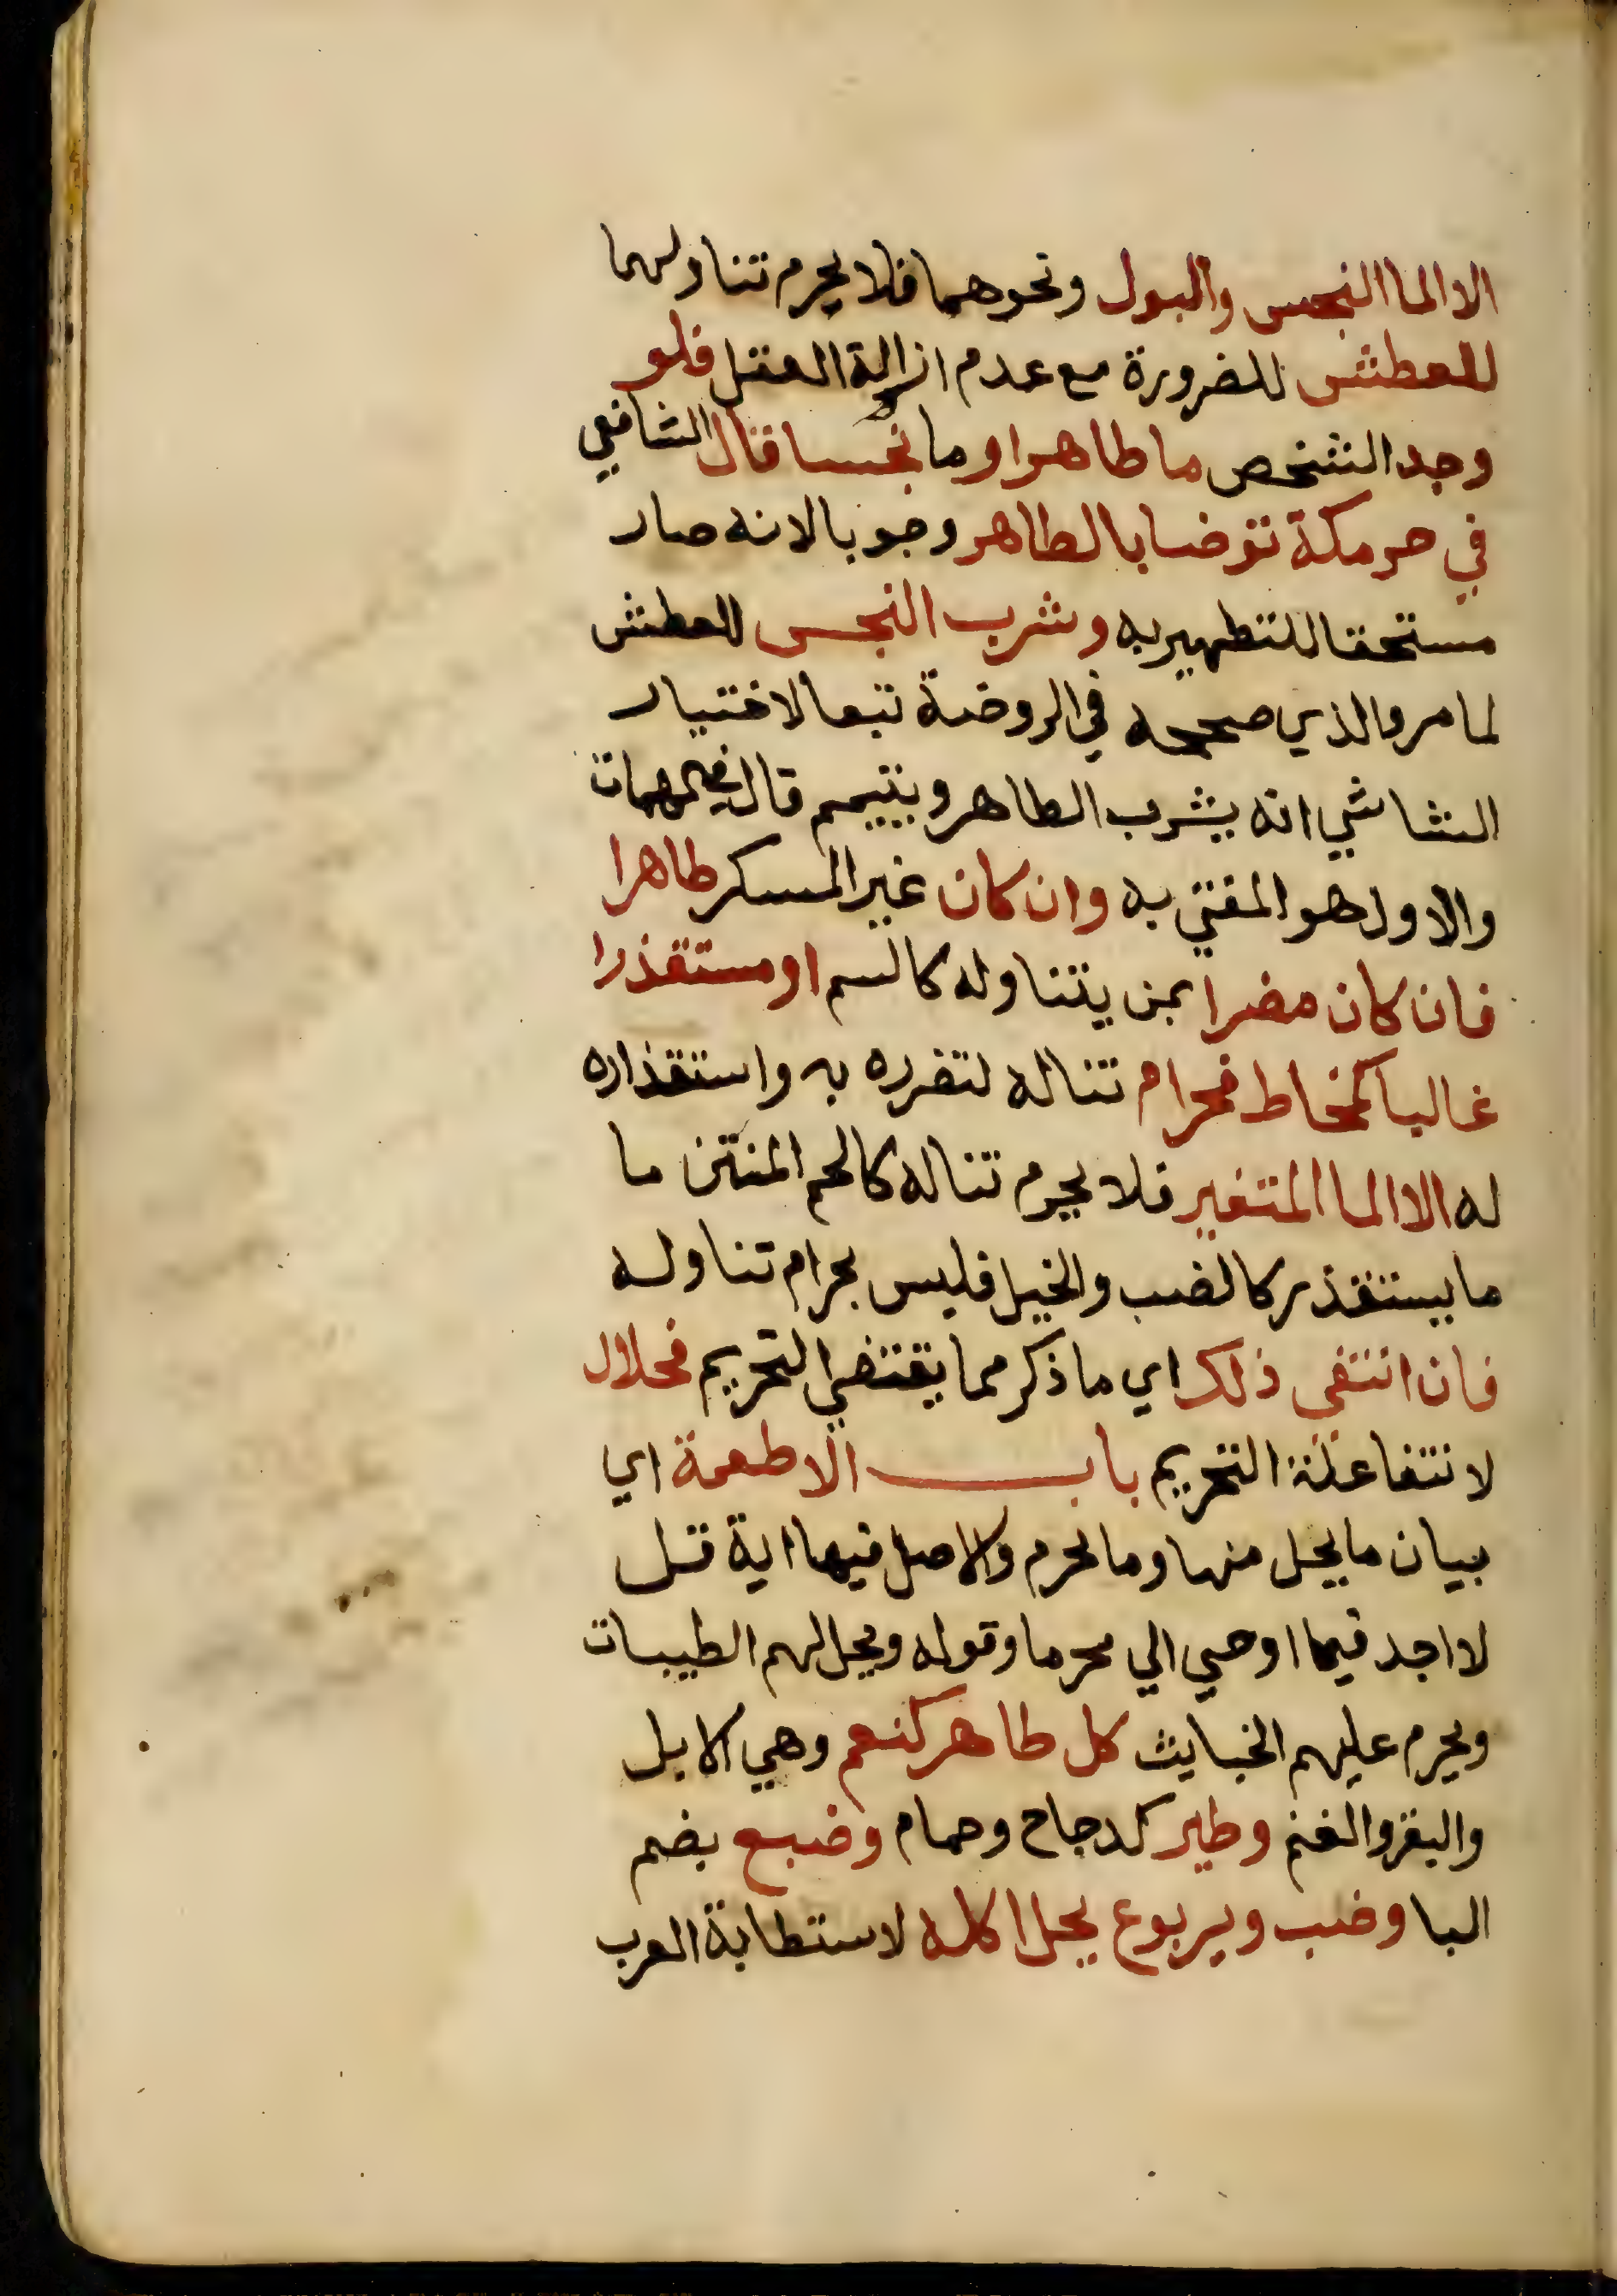 الا الما النجس والبول ونحوهما فلا يحرم تناولهما
للعطش للضرورة مع عدم ازالة العقل فلو
وجد الشخص ما طاهرا وما نجسا قال الشافعي
في حرمكة توضا بالطاهر وجوبا لانه صار
مستحقا للتطهير به وشرب النجس للعطش
لما مر والذي صححه في الروضة تبعا لاختيار
الشاشي انه يشرب الطاهر ويتيمم قال في المهمات
والاول هو المفتي به وان كان غير المسكر طاهرا
فان كان مضرا بمن يتناوله كالسم او مستقذرا
غالبا كمخاط فحرام تناله لتضرره به واستقذاره
له الا الما المتغير فلا يحرم تناله كالحم المنتن ما
ما يستقذر كالضب والخيل فليس بحرام تناوله
فان انتفي ذلك اي ما ذكر مما يقتضي التحريم فحلال
لانتفا علة التحريم باب الاطعمة اي
بيان ما يحل منها وما يحرم والاصل فيها اية قل
لا اجد فيما اوحي الي محرما وقوله ويحل لهم الطيبات
ويحرم عليهم الخبايث كل طاهر كنعم وهي الابل
والبقر والغنم وطير كدجاج وحمام وضبع بضم
البا وضب ويربوع يحل اكله لاستطابة العرب